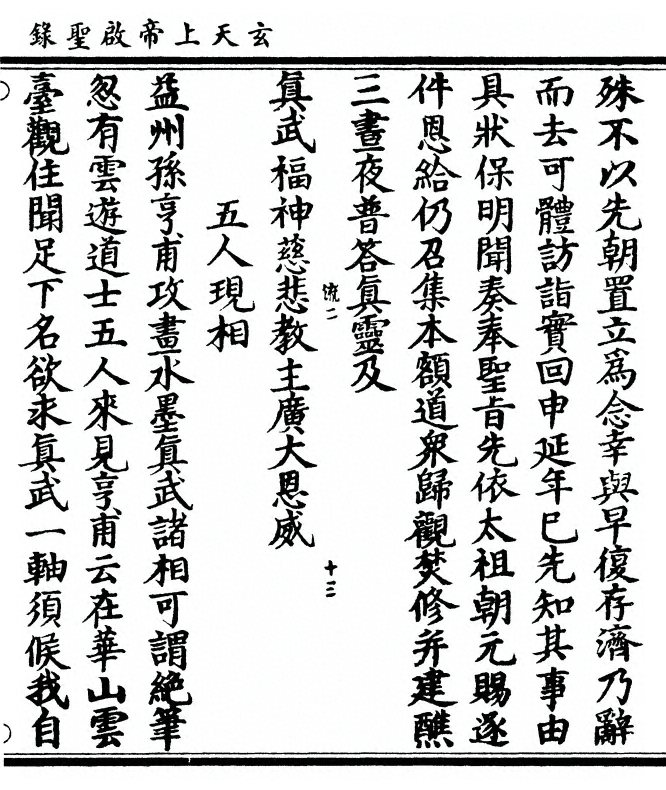 玄天上帝啟聖錄
殊不以先朝置立為念幸與早復存濟乃辭
而去可體訪詣實回申延年已先知其事由
具狀保明聞奏奉聖旨先依太祖朝元賜逐
件恩給仍召集本額道衆歸觀焚修并建醮
三晝夜普答真靈及
流二
十三
真武福神慈悲教主廣大恩威
五人現相
益州孫亨甫攻畫水墨真武諸相可謂絶筆
忽有雲遊道士五人來見亨甫云在華山雲
臺觀住聞足下名欲求真武一軸須候我自